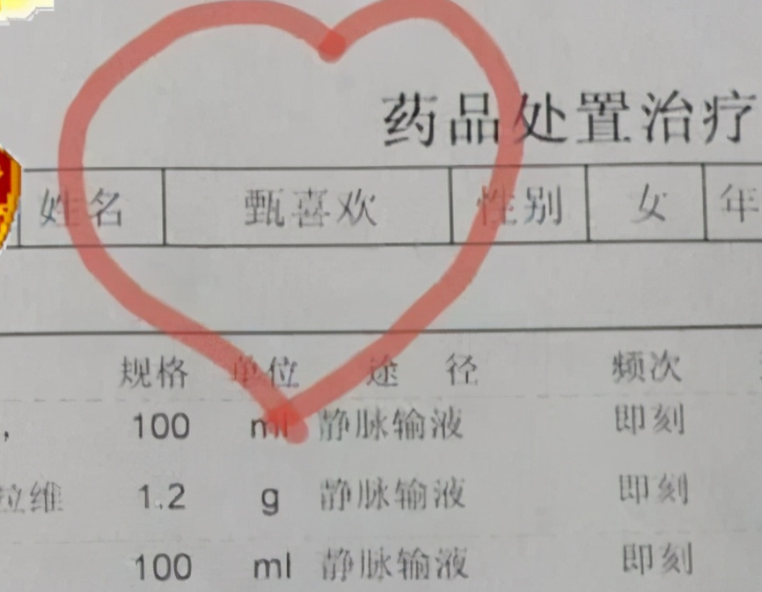 药品处置治疗
姓名 甄喜欢 性别 女 年
规格 单位 途 径 频次
, 100 ml 静脉输液 即刻
拉维 1.2 g 静脉输液 即刻
100 ml 静脉输液 即刻